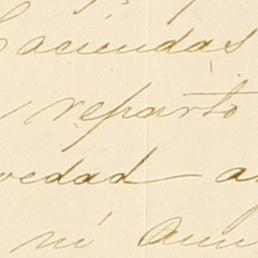 haciendas
reparto
vedad a
ni aun